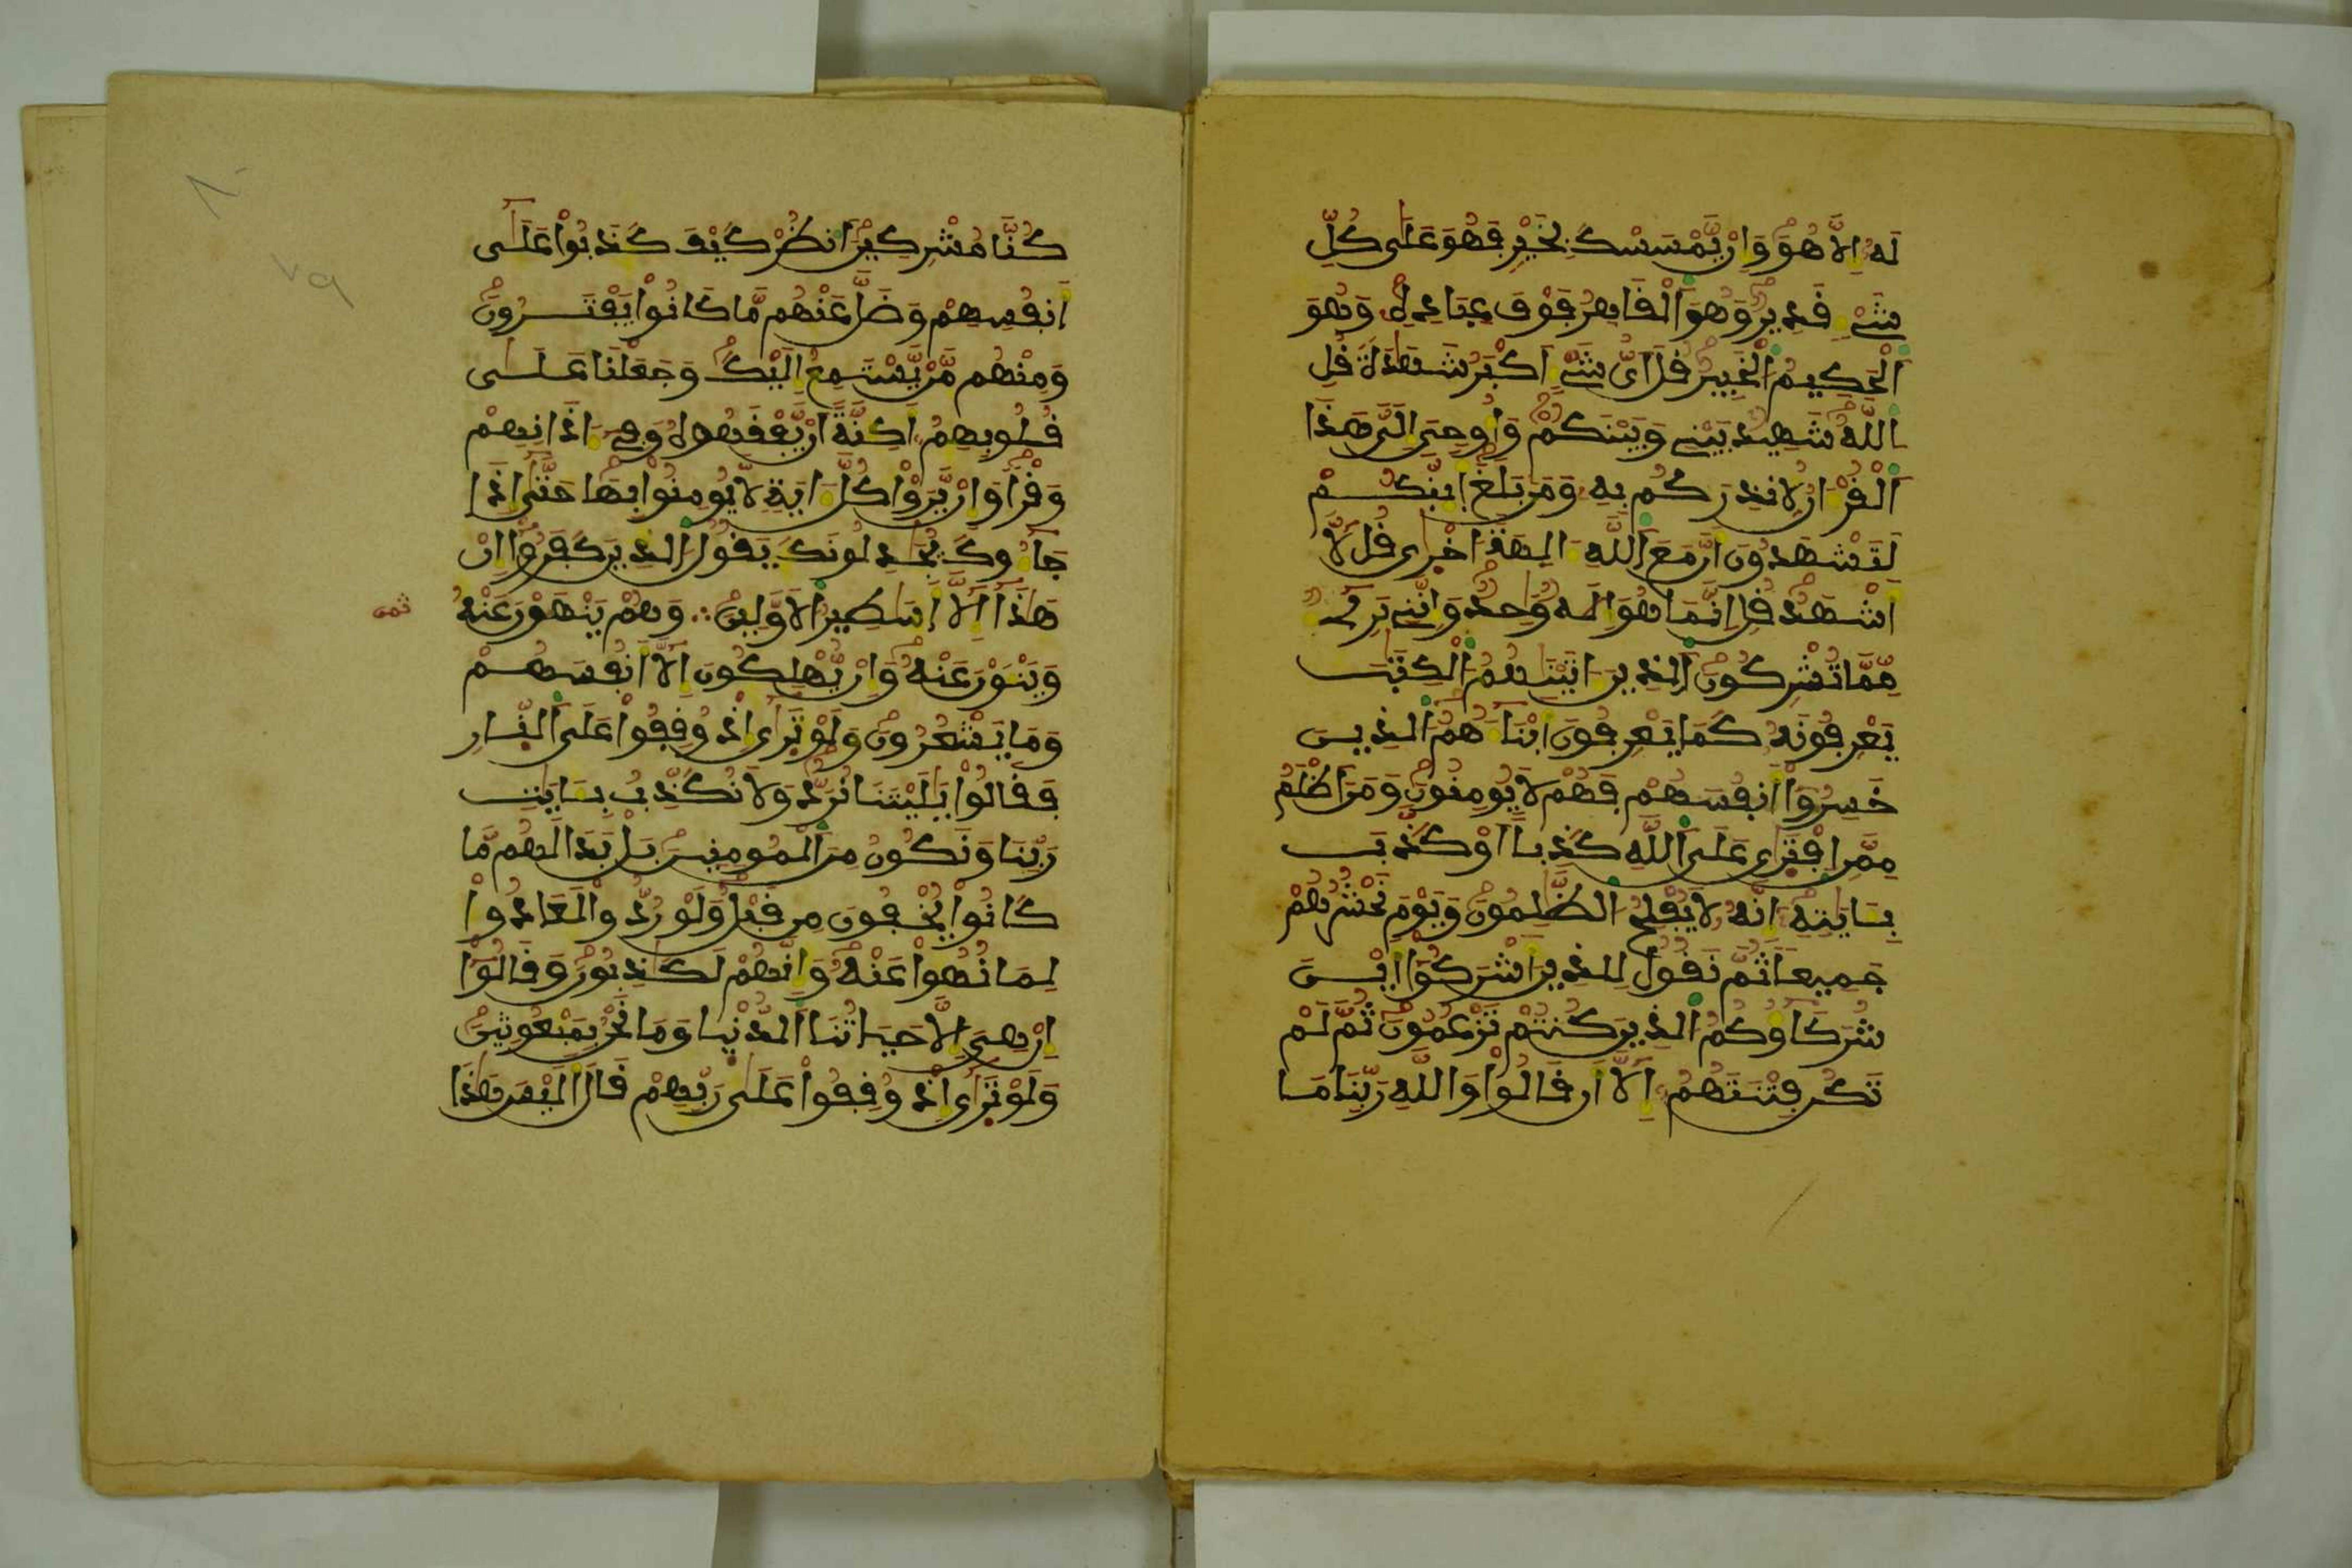 لَهُ إِلَّا هُوَ وَإِنْ يَّمْسَسْكَ بِخَيْرٍ فَهُوَ عَلَى كُلِّ
شَيْءٍ قَدِيرٌ وَهُوَ اَلْقَاهِرُ فَوْقَ عِبَادِهِ وَهُوَ
اَلْحَكِيمُ اُلْخَبِيرُ قُلَ اَيُّ شَيْءٍ اَكْبَرُ شَهَٰدَةً قُلِ
اِللَّهُ شَهِيدٌ بَيْنِي وَبَيْنَكُمْ وَأُوحِيَ إِلَيَّ هَٰذَا
اَلْقُرْءَانُ لِأُنذِرَكُم بِهِ وَمَنۢ بَلَغَ أَئِنَّكُمْ
لَتَشْهَدُونَ أَنَّ مَعَ اَللَّهِ ءَالِهَةً اُخْرَىٰ قُل لَّا
أَشْهَدُ قُلِ اِنَّمَا هُوَ إِلَٰهٌ وَٰحِدٌ وَإِنَّنِي بَرِيءٌ
مِّمَّا تُشْرِكُونَ اَلذِينَ ءَاتَيْنَٰهُمُ اُلْكِتَٰبَ
يَعْرِفُونَهُ كَمَا يَعْرِفُونَ أَبْنَآءَهُمُ اُلذِينَ
خَسِرُوٓاْ أَنفُسَهُمْ فَهُمْ لَا يُومِنُونَ وَمَنَ اَظْلَمُ
مِمَّنِ اِفْتَرَىٰ عَلَى اَللَّهِ كَذِباً اَوْ كَذَّبَ
بِـَٔايَٰتِهِ إِنَّهُ لَا يُفْلِحُ اُلظَّٰلِمُونَ وَيَوْمَ نَحْشُرُهُمْ
جَمِيعاً ثُمَّ نَقُولُ لِلذِينَ أَشْرَكُوٓاْ أَيْنَ
شُرَكَآؤُكُمُ اُلذِينَ كُنتُمْ تَزْعُمُونَ ثُمَّ لَمْ
تَكُن فِتْنَتَهُمُ إِلَّآ أَن قَالُواْ وَاللَّهِ رَبِّنَا مَا
كُنَّا مُشْرِكِينَ اَنظُرْ كَيْفَ كَذَبُواْ عَلَىٰٓ
أَنفُسِهِمْ وَضَلَّ عَنْهُم مَّا كَانُواْ يَفْتَرُونَ
وَمِنْهُم مَّنْ يَّسْتَمِعُ إِلَيْكَ وَجَعَلْنَا عَلَىٰ
قُلُوبِهِمُ أَكِنَّةً اَنْ يَّفْقَهُوهُ وَفِي ءَاذَانِهِمْ
وَقْراً وَإِنْ يَّرَوْاْ كُلَّ ءَايَةٍ لَّا يُومِنُواْ بِهَا حَتَّىٰٓ إِذَا
جَآءُوكَ يُجَٰدِلُونَكَ يَقُولُ اُلذِينَ كَفَرُوٓاْ إِنْ
هَٰذَآ إِلَّآ أَسَٰطِيرُ اُلْأَوَّلِينَ ∴ وَهُمْ يَنْهَوْنَ عَنْهُ
ثمن
وَيَنْـَٔوْنَ عَنْهُ وَإِنْ يُّهْلِكُونَ إِلَّآ أَنفُسَهُمْ
وَمَا يَشْعُرُونَ وَلَوْ تَرَىٰٓ إِذْ وُقِفُواْ عَلَى اَلنَّارِ
فَقَالُواْ يَٰلَيْتَنَا نُرَدُّ وَلَا نُكَذِّبُ بِـَٔايَٰتِ
رَبِّنَا وَنَكُونُ مِنَ اَلْمُومِنِينَ بَلْ بَدَا لَهُم مَّا
كَانُواْ يُخْفُونَ مِن قَبْلُ وَلَوْ رُدُّواْ لَعَادُواْ
لِمَا نُهُواْ عَنْهُ وَإِنَّهُمْ لَكَٰذِبُونَ وَقَالُوٓاْ
إِنْ هِيَ إِلَّا حَيَاتُنَا اَلدُّنْيَا وَمَا نَحْنُ بِمَبْعُوثِينَ
وَلَوْ تَرَىٰٓ إِذْ وُقِفُواْ عَلَىٰ رَبِّهِمْ قَالَ أَلَيْسَ هَٰذَا
٨٠
٧٩